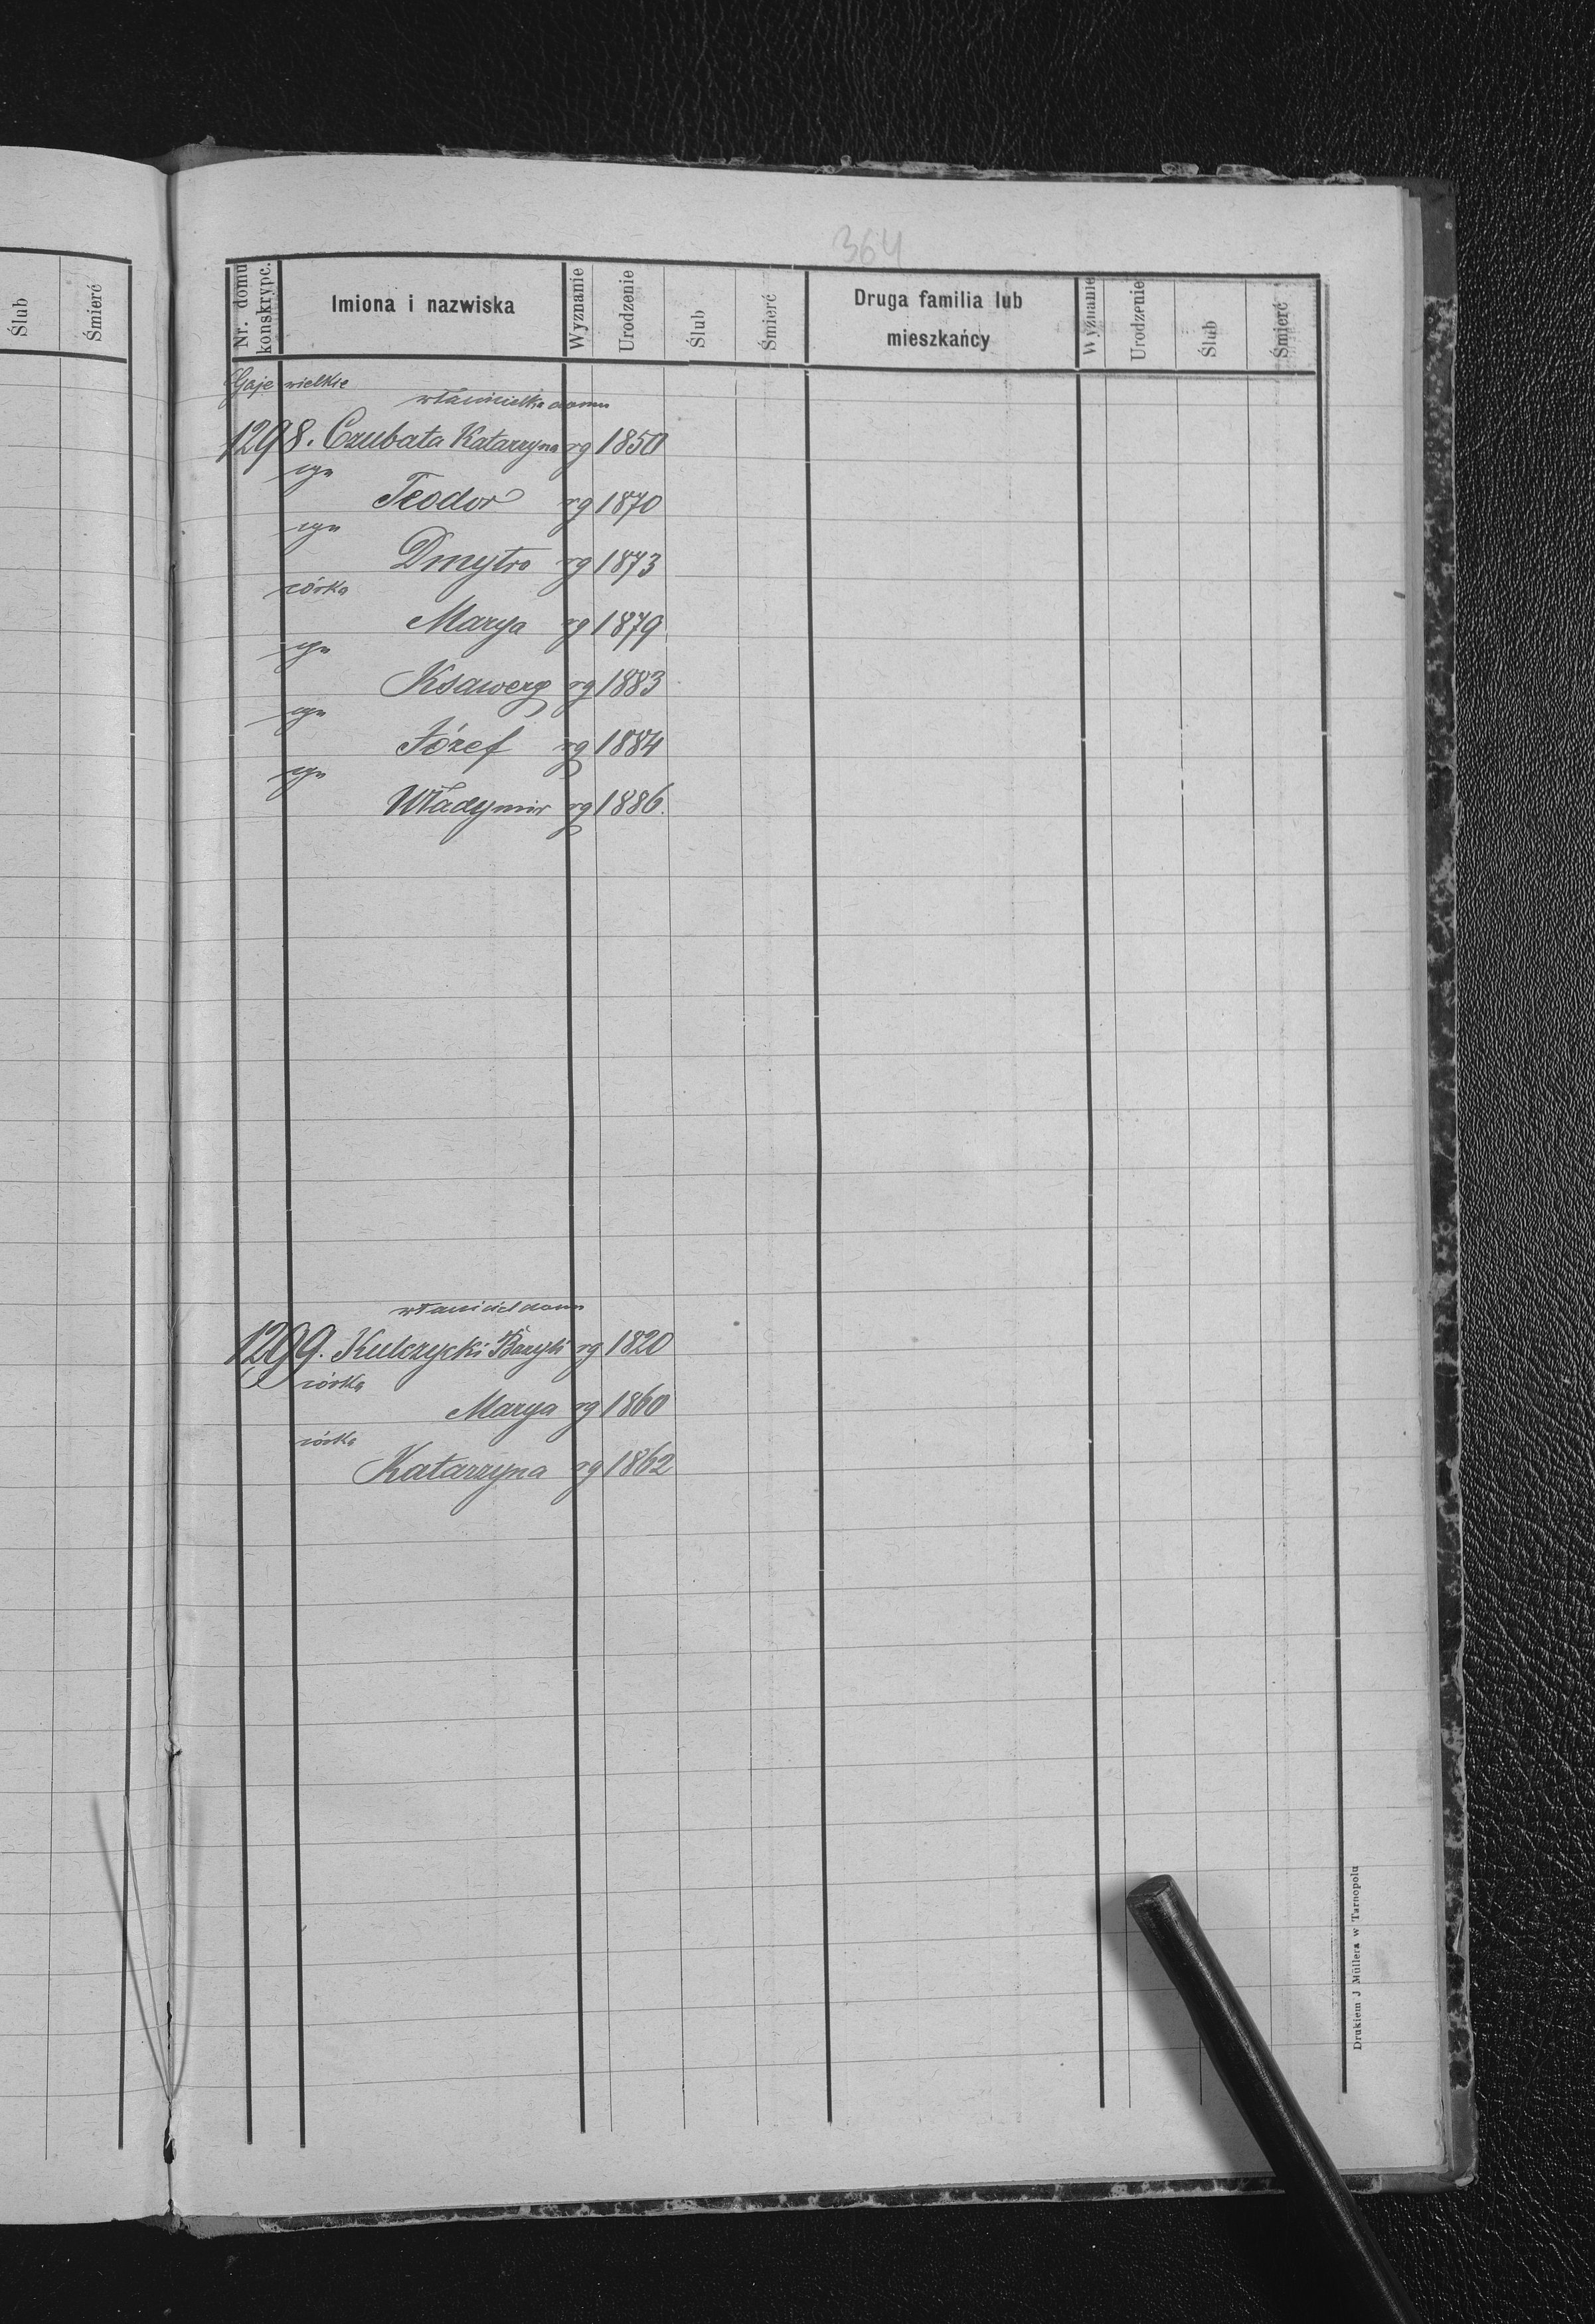 Ślub Śmierć
364
Nr. domu konskrypc. Imiona i nazwiska Wyznanie Urodzenie Ślub Śmierć Druga familia lub mieszkańcy Wyznanie Urodzenie Ślub Śmierć
Gaje wielkie
właścicielka domu
1298. Czubata Katarzyna rg 1850
syn
Teodor rg 1870
syn
Dmytro rg 1873
córka
Marya rg 1879
syn
Ksawery rg 1883
syn
Józef rg 1884
syn
Władymir rg 1886.
właściciel domu
1299. Kulczycki Bazyli rg 1820
córka
Marya rg 1860
córka
Katarzyna rg 1862
Drukiem J Müllera w Tarnopolu